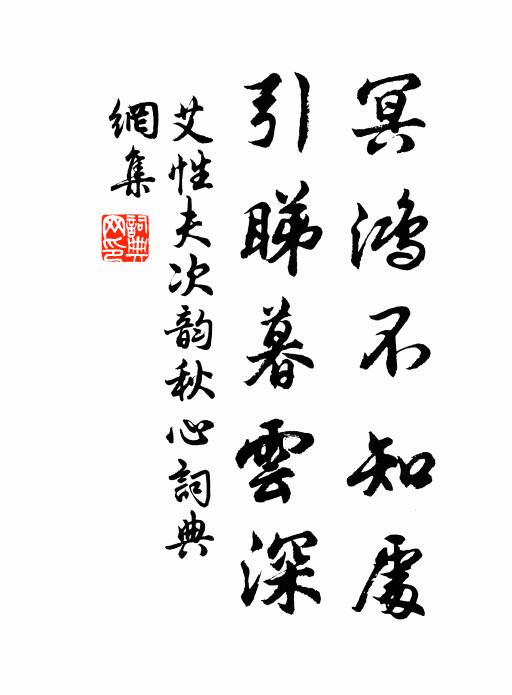 冥鴻不知處
引睇暮雲深
艾性夫次韵秋心詞典
網集
詞典网印